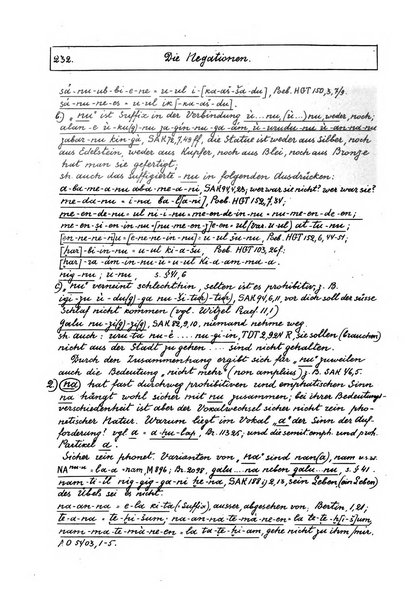 232. Die Negationen.
šá-nu-ub-bi-e-ne = u-ul i-[ka-aš-ša-du], Poeb. HGT 150,3,7/9.
šá-nu-ne-es = u-ul ik-[ka-aš-du].
b.) „nu" ist Suffix in der Verbindung ù...nu, (ù...)nu, weder, noch;
alan-e ù-ku(g)-nu za-gin-nu-ga-àm, ù-urudu-nu ù-an-na-nu
zabar-nu kin-gà, SAK 72, 7,49ff, die Statue ist weder aus Silber, noch
aus Edelstein weder aus Kupfer, noch aus Blei, noch aus Bronze
hat man sie gefertigt;
sh. auch das suffigierte -nu in folgenden Ausdrücken:
a-ba-me-a-nu aba-me-a-ni, SAK 94,4,23; wer war sie nicht? wer war sie?
me-da-nu = i-na ba-l[a-ni], Poeb. HGT 152,7,34;
me-en-de-nu = ul ni-i-nu = me-en-de-in-nu = nu-me-en-de-en;
me-en-si-en-in-nu [nu-me-en-ze-en] = ul (var. u-ul) at-tu-nu;
[en-ne-ne-n]u = [e-ne-ne-in-nu] = u-ul šu-nu, Poeb. HGT 152,6, 44-51;
[har] bi-in-nu = u-ul ki-a-šu, Poeb. HGT 103,26f;
[har]-za-àm-in-nu = u-ul ki-a-am-ma-a.
nig-nu; ù-nu, s. § 41, 6
c.) „nu" verneint schlechthin, selten ist es prohibitiv, z. B.
igi-zu ù-du(g)-ga nu-ši-tu(r)-tu(r), SAK 94,6,11, vor dich soll der süsse
Schlaf nicht kommen (vgl. Witzel Raaf 11,1)
galu nu-zi(g)-zi(g), SAK 82,9,10, niemand nehme weg.
sh. auch: uru-ta nu-è ... nu-gi-in, TDT 2,924 R, sie sollen (brauchen)
nicht aus der Stadt zu gehen .... sind nicht gehalten.
Durch den Zusammenhang ergibt sich für „nu" zuweilen
auch die Bedeutung „nicht mehr" (non amplius), z. B. SAK 46,5.
2.) na hat fast durchweg prohibitiven und emphatischen Sinn
na hängt wohl sicher mit nu zusammen; bei ihrer Bedeutungs-
verschiedenheit ist aber der Vokalwechsel sicher nicht rein pho-
netischer Natur. Warum liegt im Vokal „a" der Sinn der Auf-
forderung? vgl. a = a-hu-lap, Br. 11325, und die semit. emph. und proh.
Partikel a.
Sicher rein phonet. Varianten von „na" sind nan(a), nam u.s.w.
NAⁿᵘ⁻ᵘ = la-a = nam, M 896; Br. 2098. galu...na neben galu...nu, s. § 41.
nam-ti-il nig-gig-ga-ni he-na, SAK 188 ij 2,13, sein Leben (ein Leben)
des Übel sei es nicht.
na-an-na = e-la ki-ta (Suffix), ausser, abgesehen von, Bertin, 1,21;
te-a-na = te-hi-šum; na-an-na-te-ma-ne-en = la te-te-hi-i-šum,
nam-ma-te-ma-ne-en = la ta-te-hi-a-am, gehe nicht zu ihm / mir.
AO 5403, 1-5.